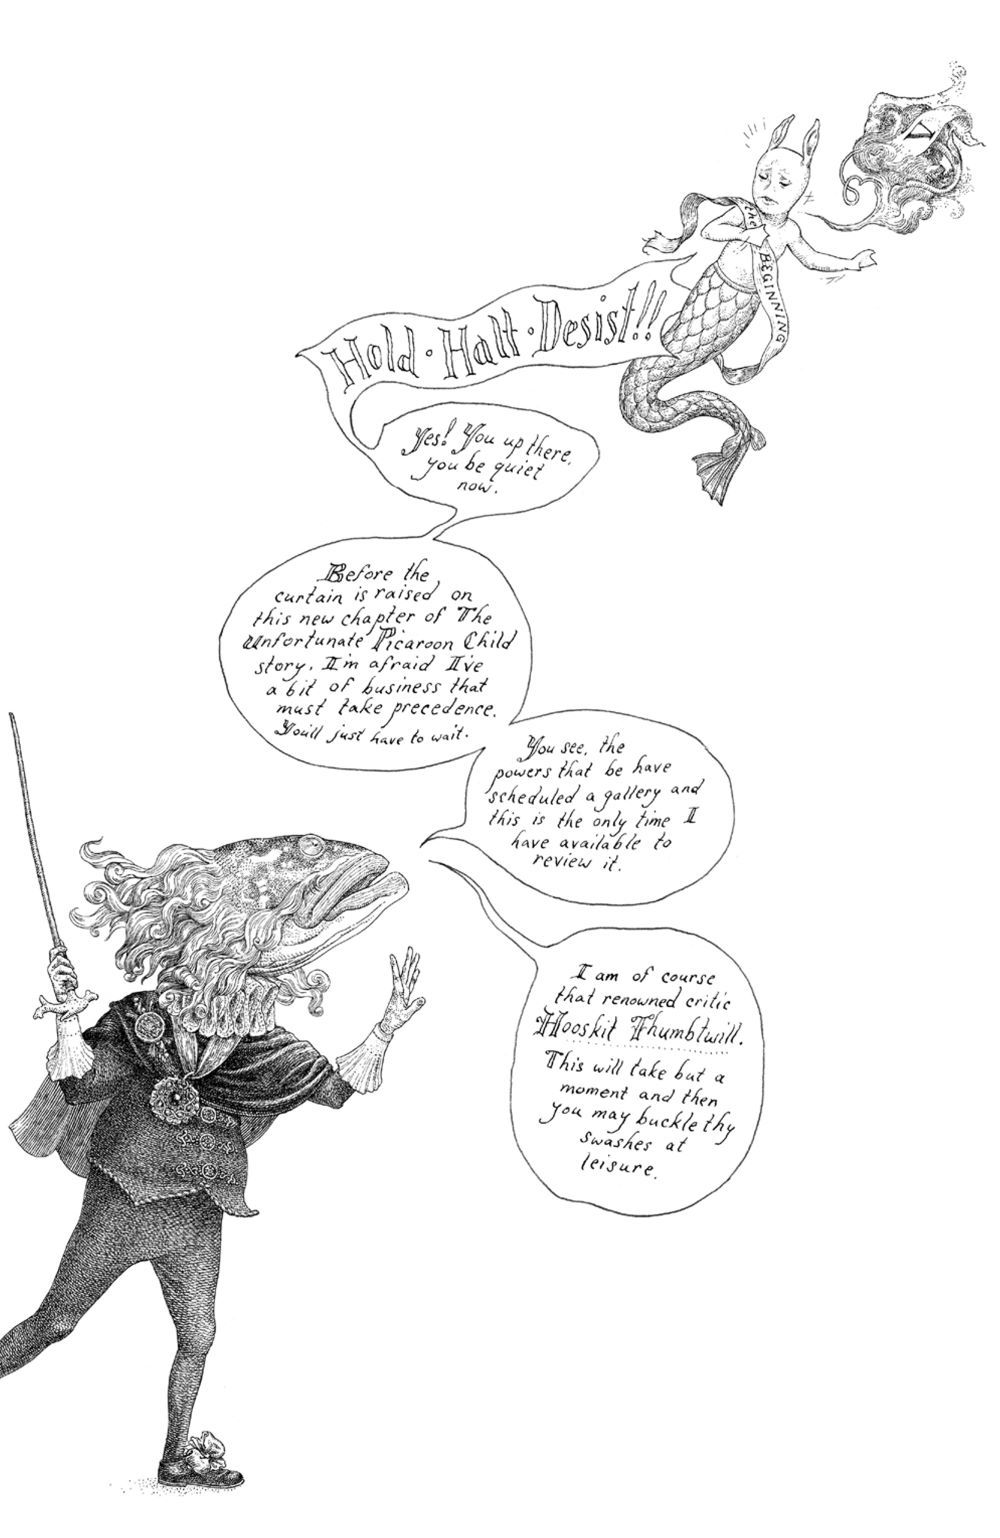 the BEGINNING
Hold · Halt · Desist!!
Yes! You up there,
you be quiet
now.
Before the
curtain is raised on
this new chapter of The
Unfortunate Picaroon Child
story, I'm afraid I've
a bit of business that
must take precedence.
You'll just have to wait.
You see, the
powers that be have
scheduled a gallery and
this is the only time I
have available to
review it.
I am of course
that renowned critic
Hooskit Thumbtwill.
This will take but a
moment and then
you may buckle thy
swashes at
leisure.